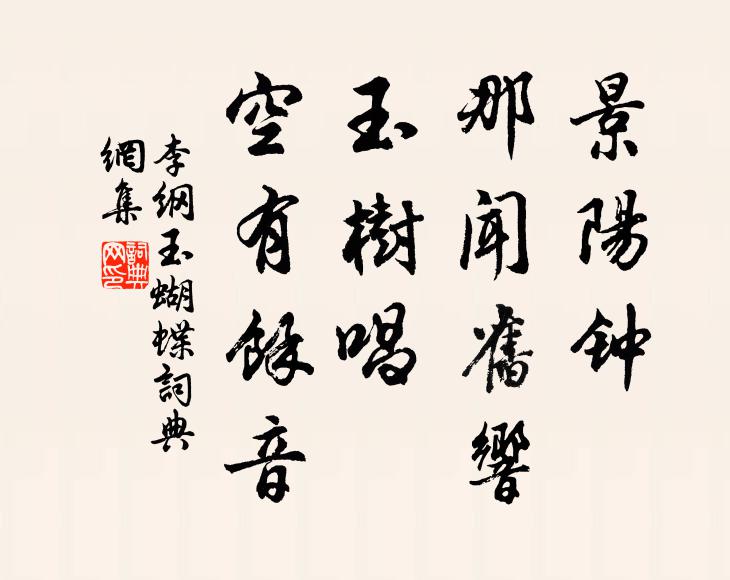 景陽钟
那聞舊響
玉樹唱
空有餘音
李綱玉蝴蝶詞典
網集
詞典
网印